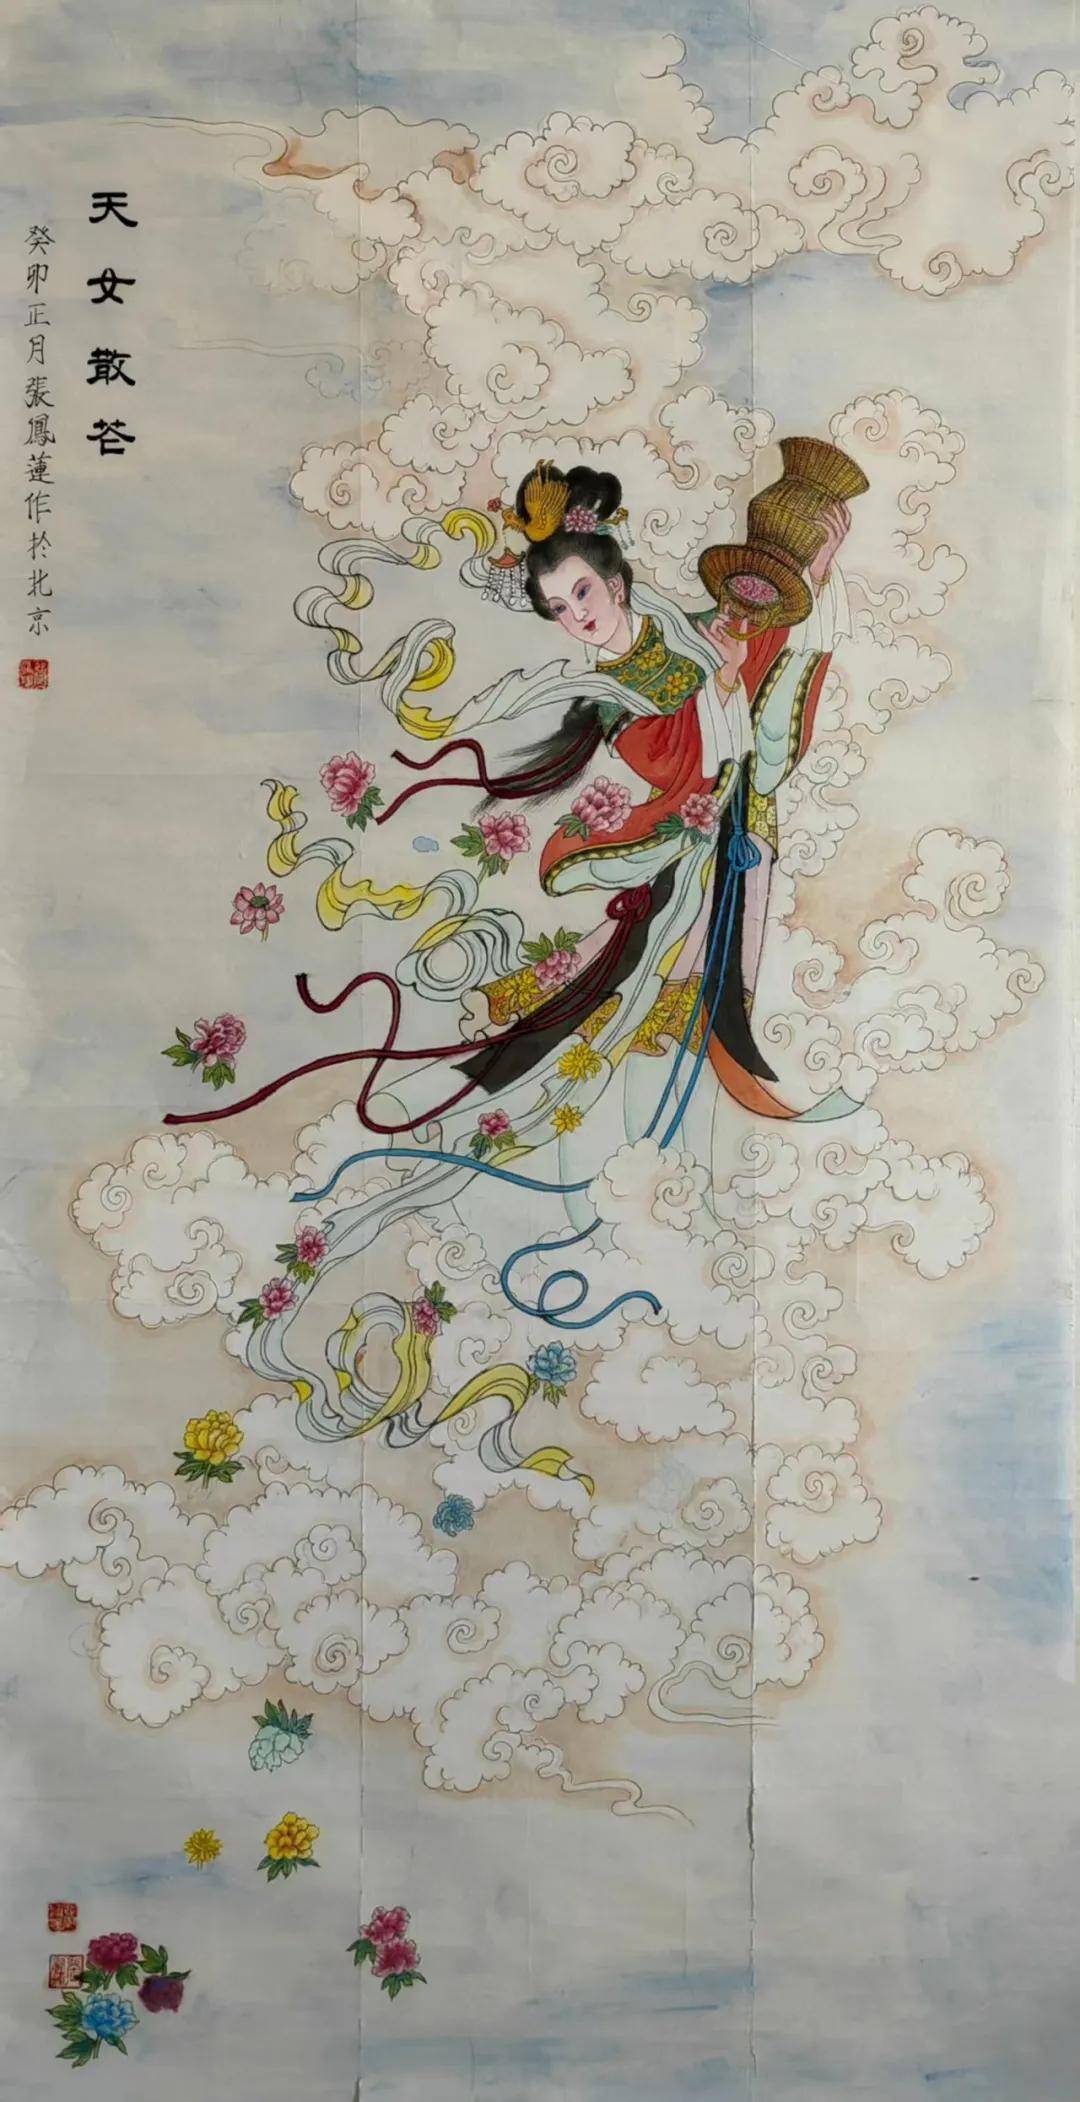 天女散花
癸卯正月張鳳蓮作於北京